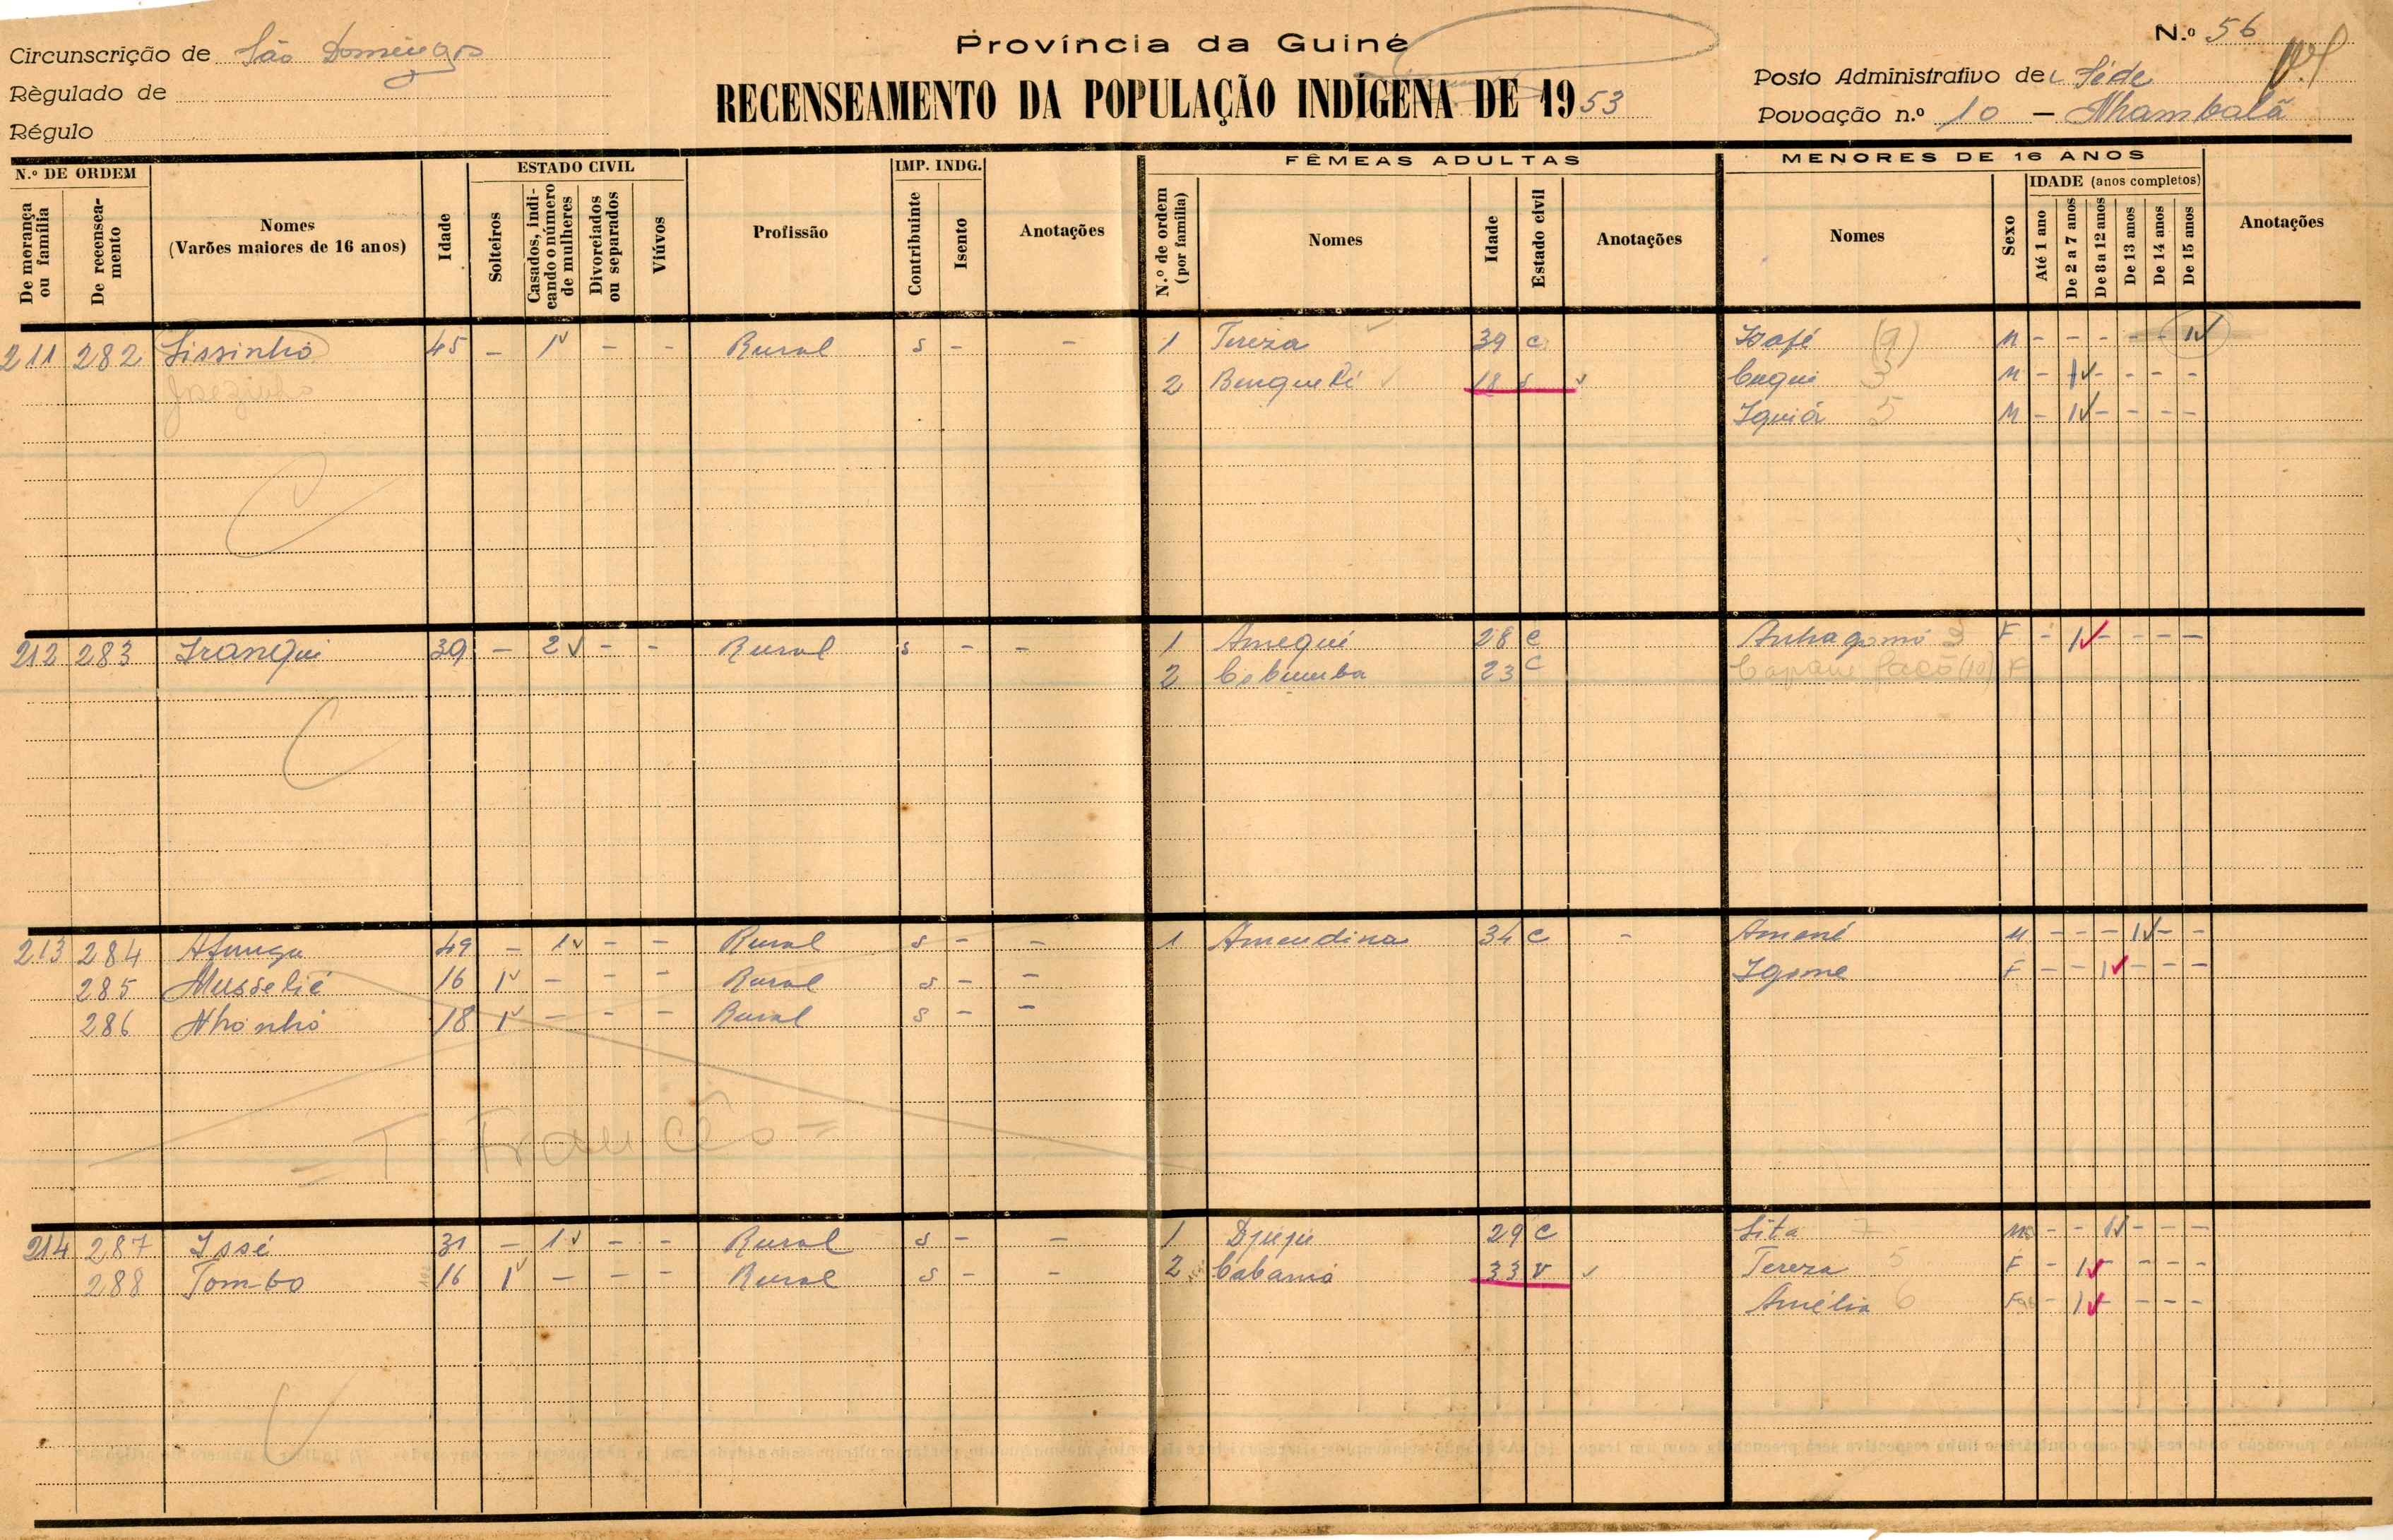 Província da Guiné
N.º 56
Circunscrição de São Domingos
RECENSEAMENTO DA POPULAÇÃO INDÍGENA DE 1953
Posto Administrativo de Séde
Règulado de
Povoação n.º 10 — Nhambalã
Régulo
N.º DE ORDEM
De morança ou família
De recenseamento
Nomes
(Varões maiores de 16 anos)
Idade
ESTADO CIVIL
Solteiros
Casados, indicando o número de mulheres
Divorciados ou separados
Viúvos
Profissão
IMP. INDG.
Contribuinte
Isento
Anotações
FÊMEAS ADULTAS
N.º de ordem (por família)
Nomes
Idade
Estado civil
Anotações
MENORES DE 16 ANOS
Nomes
Sexo
IDADE (anos completos)
Até 1 ano
De 2 a 7 anos
De 8 a 12 anos
De 13 anos
De 14 anos
De 15 anos
Anotações
211 282 Sissinho 45 – 1 – – Rural s – – 1 Tereza 39 c Isafé (9) M – – – – – 1
Josezinho 2 Benqueti 18 s Cuqui 3 M – 1 – – – –
Iquiá 5 M – 1 – – – –
212 283 Iranqui 39 – 2 – – Rural s – – 1 Amequé 28 c F – 1 – – – –
2 Cobumba 23 c (10) F
213 284 Afunga 49 – 1 – – Rural s – – 1 Amendina 34 c – Amené M – – – 1 – –
285 Musselié 16 1 – – – Rural s – – Igome F – – 1 – – –
286 Nhonhó 18 1 – – – Rural s – –
T. Francês
214 287 Issé 31 – 1 – – Rural s – – 1 Djejé 29 c Sita 7 M – – 1 – – –
288 Tombo 16 1 – – – Rural s – – 2 Cabamó 33 v Tereza 5 F – 1 – – –
Amélia 6 F – 1 – – –